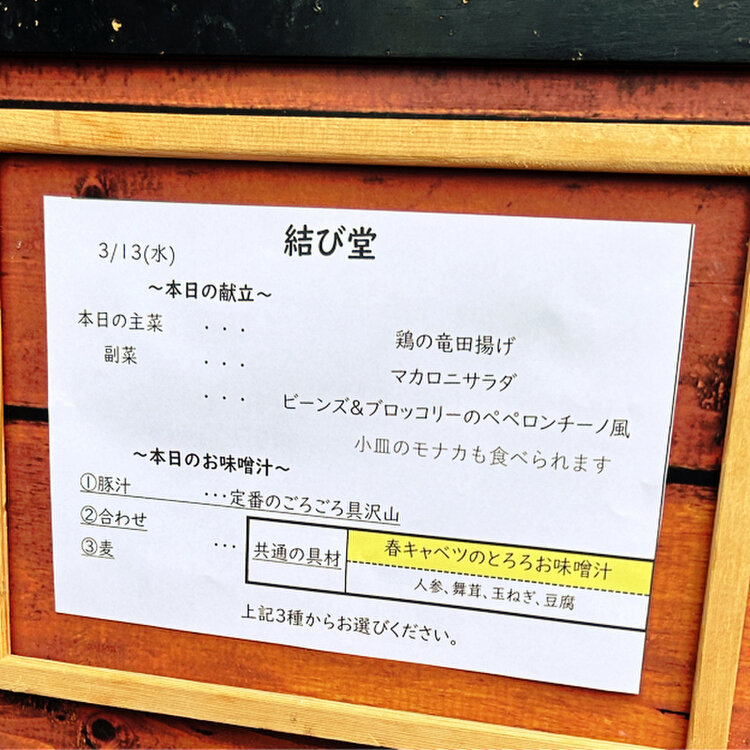 結び堂
3/13(水)
～本日の献立～
本日の主菜 ・・・ 鶏の竜田揚げ
副菜 ・・・ マカロニサラダ
・・・ ビーンズ&ブロッコリーのペペロンチーノ風
小皿のモナカも食べられます
～本日のお味噌汁～
①豚汁 ・・・定番のごろごろ具沢山
②合わせ
③麦 ・・・ 共通の具材 春キャベツのとろろお味噌汁
人参、舞茸、玉ねぎ、豆腐
上記3種からお選びください。